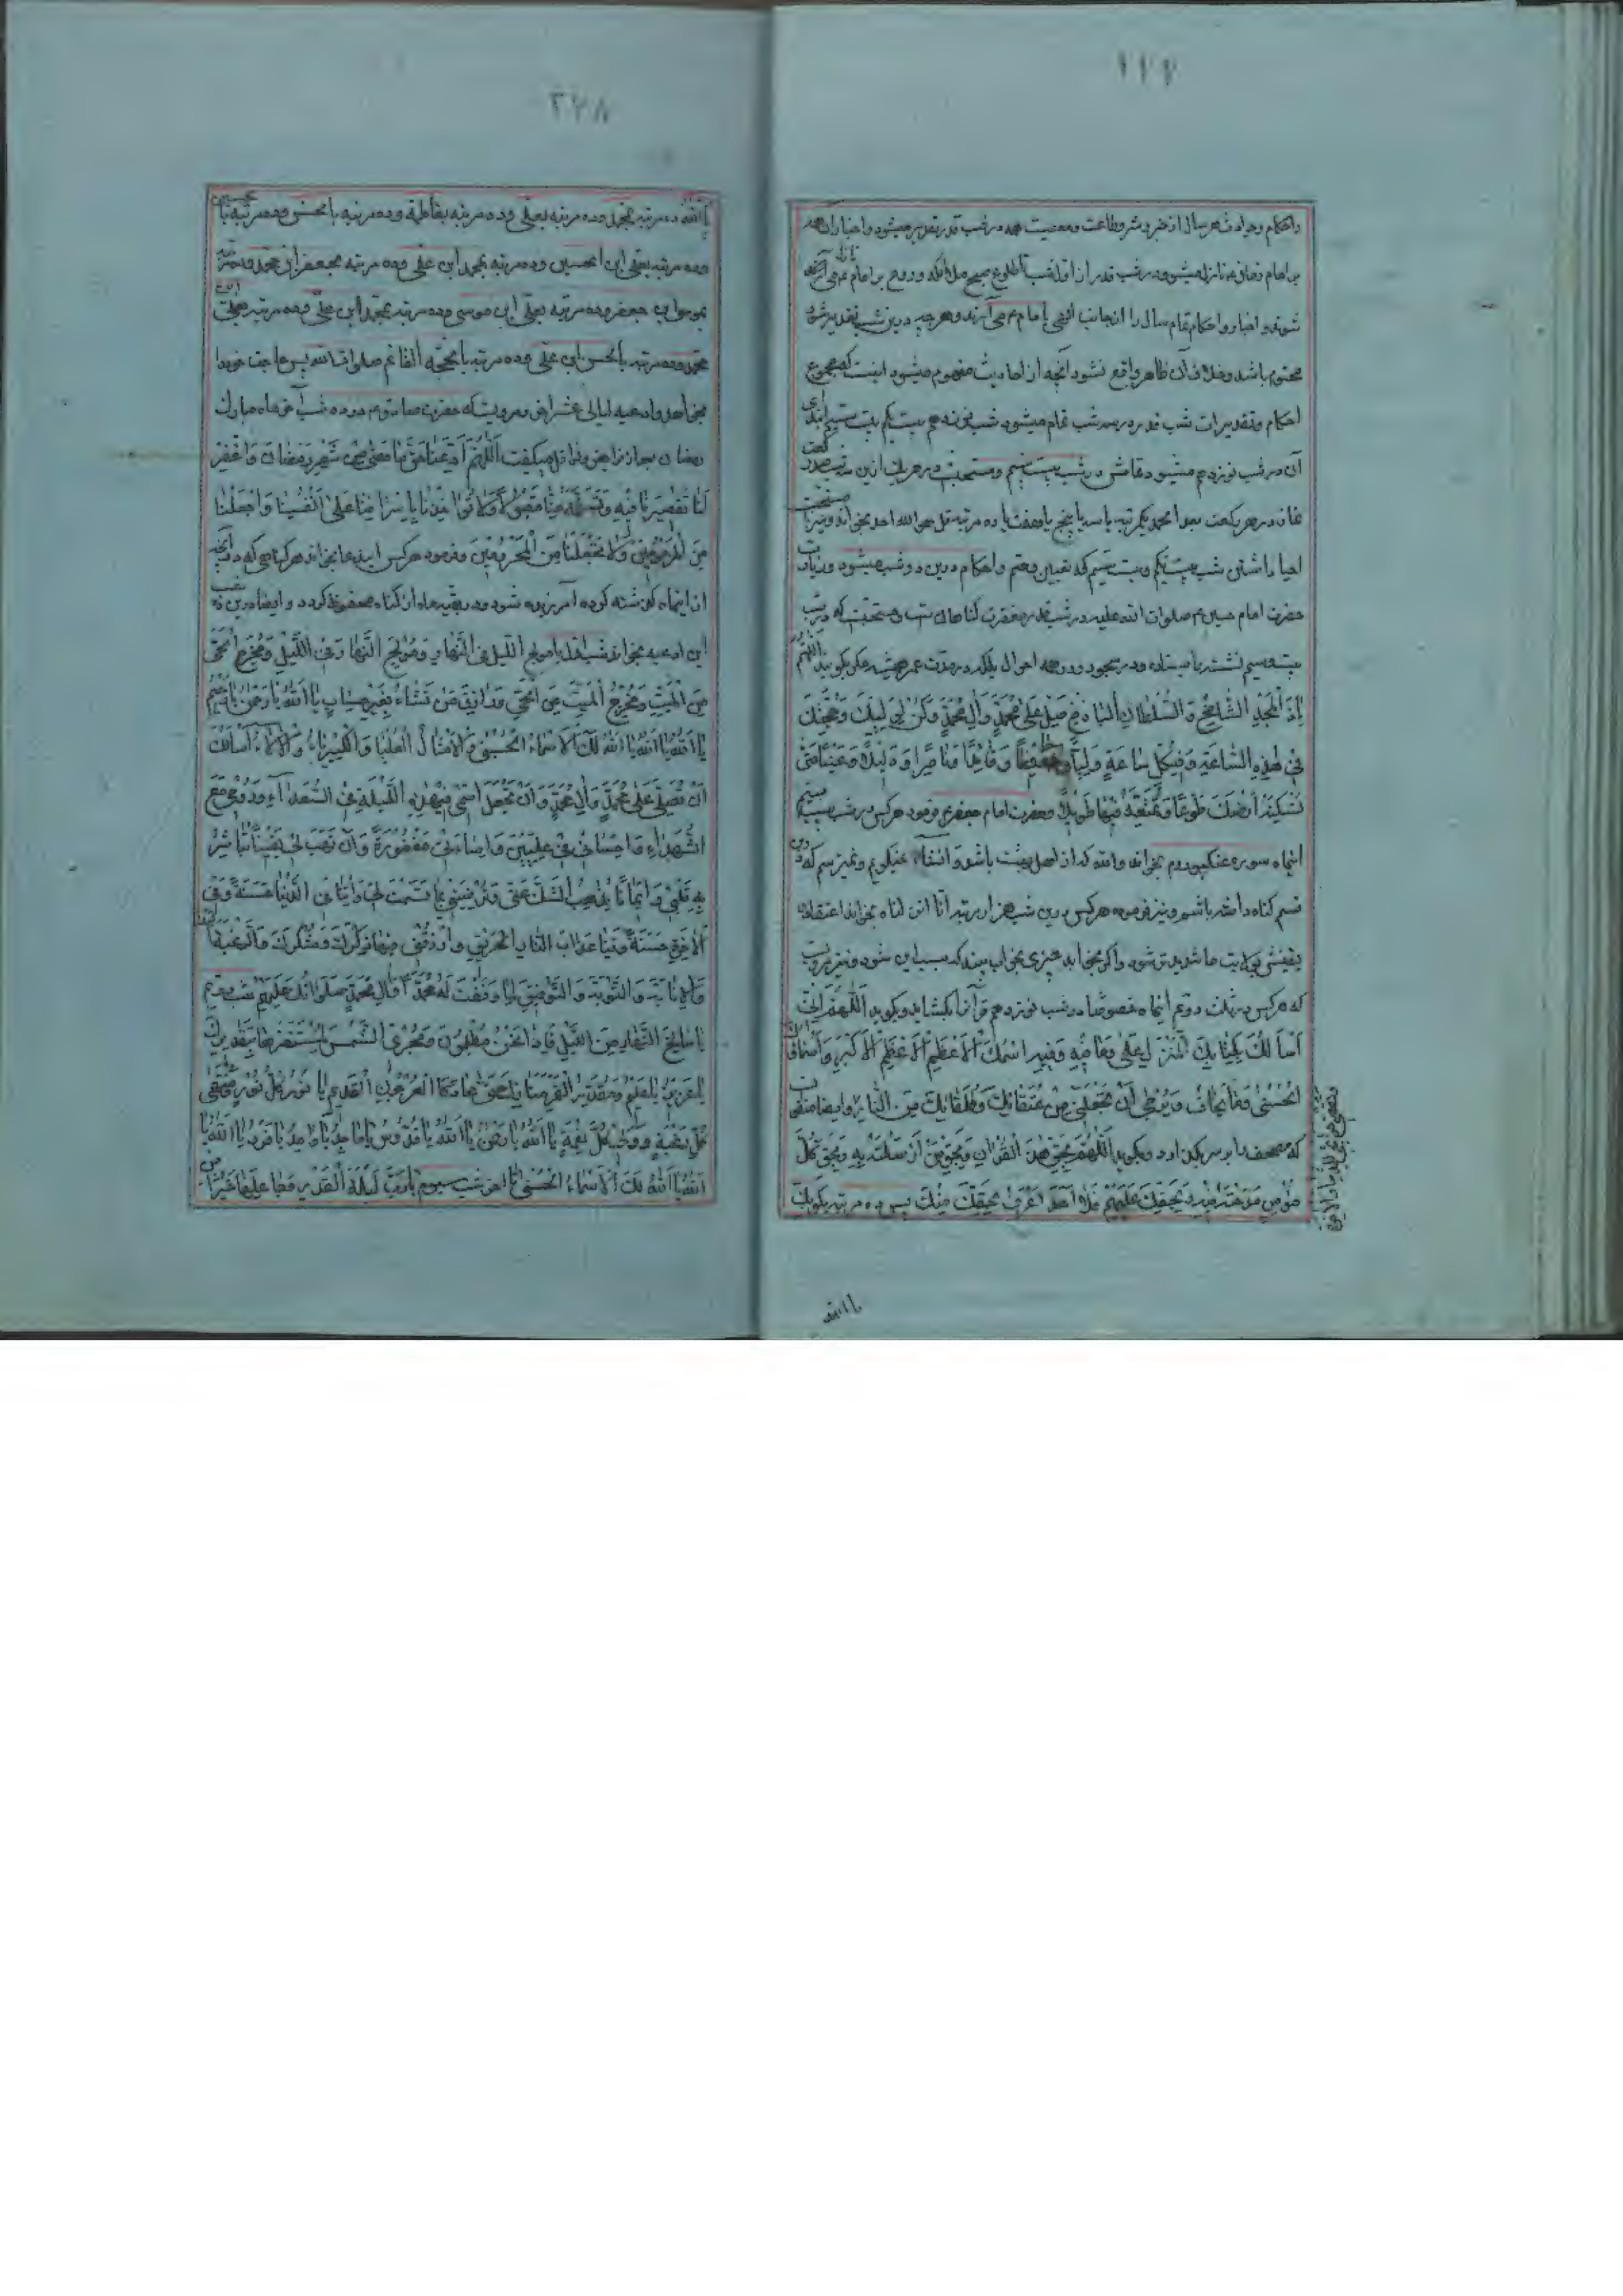 ۲۲۷
و احکام و حوادث هر سال از خیر و شر و طاعت و معصیت همه در شب قدر تقدیر میشود و اخبار آن همه
بر امام زمان نازل میشود در شب قدر از اول شب تا طلوع صبح ملائکه و روح بر امام می آیند
شوند و اخبار و احکام تمام سال را از جانب الهی با امام می آورند و هرچه درین شب تقدیر شود
محتوم باشد و خلاف آن ظاهر واقع نشود آنچه از احادیث مفهوم میشود اینست که مجموع
احکام و تقدیرات شب قدر در سه شب تمام میشود شب نوزدهم بیست یکم بیست سیم ابتدای
آن در شب نوزدهم میشود تمامش در شب بیست سیم و مستحبست در هر یک ازین سه شب صد رکعت
نماز در هر رکعت بعد از حمد یکمرتبه یا سه یا پنج یا هفت یا ده مرتبه قل هو الله احد بخواند و نیز
احیا داشتن شب بیست یکم و بیست سیم که تعیین و حتم و احکام درین دو شب میشود و زیارت
حضرت امام حسین صلوات الله علیه در شب قدر مغفرت گناهان است و مستحبست که در شب
بیست و سیم نشسته یا ایستاده و در سجود و در همه احوال بلکه در مدت عمر همیشه مکرر بگوید اللهم
یا ذَا الْمَجْدِ الشَّامِخِ وَ السُّلْطَانِ الْبَاذِخِ صَلِّ عَلَى مُحَمَّدٍ وَ آلِ مُحَمَّدٍ وَ كُنْ لِوَلِيِّكَ وَ حُجَّتِكَ
فِي هٰذِهِ السَّاعَةِ وَ فِي كُلِّ سَاعَةٍ وَلِيّاً وَ حَفِيظاً وَ قَائِداً وَ نَاصِراً وَ دَلِيلاً وَ عَيْناً حَتَّى
تُسْكِنَهُ أَرْضَكَ طَوْعاً وَ تُمَتِّعَهُ فِيهَا طَوِيلاً و حضرت امام جعفر فرمود هرکس در شب بیست سیم
اینماه سوره عنکبوت و روم بخواند والله که از اهل بهشت باشد و انشاء الله نمیگویم و نمیترسم که درین
قسم گناه داشته باشم و نیز فرموده هرکس درین شب هزار مرتبه انا انزلناه بخواند اعتقاد
یقینش بولایت ما شدیدتر شود
که هرکس در ثلث دوم اینماه خصوصا در شب نوزدهم قرآنرا بگشاید و بگوید اَللّٰهُمَّ اِنِّی
اَسْأَلُكَ بِكِتَابِكَ الْمُنْزَلِ وَ مَا فِيهِ وَ فِيهِ اسْمُكَ الْأَعْظَمُ الْأَكْبَرُ وَ أَسْمَاؤُكَ
الْحُسْنَى وَ مَا يُخَافُ وَ يُرْجَى أَنْ تَجْعَلَنِي مِنْ عُتَقَائِكَ وَ طُلَقَائِكَ مِنَ النَّارِ و ایضا
که مصحف را بر سر بگذارد و بگوید اَللّٰهُمَّ بِحَقِّ هٰذَا الْقُرْآنِ وَ بِحَقِّ مَنْ أَرْسَلْتَهُ بِهِ وَ بِحَقِّ كُلِّ
مُؤْمِنٍ مَدَحْتَهُ فِيهِ وَ بِحَقِّكَ عَلَيْهِمْ فَلَا أَحَدَ أَعْرَفُ بِحَقِّكَ مِنْكَ پس ده مرتبه بگوید بک
یا الله
۲۲۸
یا الله ده مرتبه بمحمد و ده مرتبه بعلی و ده مرتبه بفاطمة و ده مرتبه بالحسن و ده مرتبه بالحسین
و ده مرتبه بعلی ابن الحسین و ده مرتبه بمحمد ابن علی و ده مرتبه بجعفر ابن محمد و ده مرتبه
بموسی ابن جعفر و ده مرتبه بعلی ابن موسی و ده مرتبه بمحمد ابن علی و ده مرتبه بعلی ابن
محمد و ده مرتبه بالحسن ابن علی و ده مرتبه بالحجة القائم صلوات الله پس حاجت خود را
بخواهد و ادعیه لیالی عشر اخر مرویست که حضرت صادق در ده شب آخر ماه مبارک
رمضان بعد از فرایض و نوافل میگفت اَللّٰهُمَّ أَدِّ عَنَّا حَقَّ مَا مَضَى مِنْ شَهْرِ رَمَضَانَ وَ اغْفِرْ
لَنَا تَقْصِيرَنَا فِيهِ وَ تَسَلَّمْهُ مِنَّا مَقْبُولاً وَ لَا تُؤَاخِذْنَا بِإِسْرَافِنَا عَلَى أَنْفُسِنَا وَ اجْعَلْنَا
مِنَ الْمَرْحُومِينَ وَ لَا تَجْعَلْنَا مِنَ الْمَحْرُومِينَ و فرمود هرکس این دعا بخواند هر گناهی که در آنچه
از اینماه گذشته کرده آمرزیده شود و در بقیه ماه از گناه محفوظ گردد و ایضا درین ده شب
این ادعیه بخواند شب اول یا مُولِجَ اللَّيْلِ فِي النَّهَارِ وَ مُولِجَ النَّهَارِ فِي اللَّيْلِ وَ مُخْرِجَ الْحَيِّ
مِنَ الْمَيِّتِ وَ مُخْرِجَ الْمَيِّتِ مِنَ الْحَيِّ وَ رَازِقَ مَنْ تَشَاءُ بِغَيْرِ حِسَابٍ يَا اَللهُ يَا رَحْمٰنُ يَا رَحِيمُ
يَا اَللهُ يَا اَللهُ يَا اَللهُ لَكَ الْأَسْمَاءُ الْحُسْنَى وَ الْأَمْثَالُ الْعُلْيَا وَ الْكِبْرِيَاءُ وَ الْآلَاءُ أَسْأَلُكَ
أَنْ تُصَلِّيَ عَلَى مُحَمَّدٍ وَ آلِ مُحَمَّدٍ وَ أَنْ تَجْعَلَ اسْمِي فِي هٰذِهِ اللَّيْلَةِ فِي السُّعَدَاءِ وَ رُوحِي مَعَ
الشُّهَدَاءِ وَ إِحْسَانِي فِي عِلِّيِّينَ وَ إِسَاءَتِي مَغْفُورَةً وَ أَنْ تَهَبَ لِي يَقِيناً تُبَاشِرُ
بِهِ قَلْبِي وَ إِيمَاناً يُذْهِبُ الشَّكَّ عَنِّي وَ تُرْضِيَنِي بِمَا قَسَمْتَ لِي وَ آتِنَا فِي الدُّنْيَا حَسَنَةً وَ فِي
الْآخِرَةِ حَسَنَةً وَ قِنَا عَذَابَ النَّارِ الْحَرِيقِ وَ ارْزُقْنِي فِيهَا ذِكْرَكَ وَ شُكْرَكَ وَ الرَّغْبَةَ إِلَيْكَ
وَ الْإِنَابَةَ وَ التَّوْبَةَ وَ التَّوْفِيقَ لِمَا وَفَّقْتَ لَهُ مُحَمَّداً وَ آلَ مُحَمَّدٍ صَلَوَاتُكَ عَلَيْهِمْ شب دوم
يَا سَالِخَ النَّهَارِ مِنَ اللَّيْلِ فَإِذَا نَحْنُ مُظْلِمُونَ وَ مُجْرِيَ الشَّمْسِ لِمُسْتَقَرِّهَا بِتَقْدِيرِكَ
يَا عَزِيزُ يَا عَلِيمُ وَ مُقَدِّرَ الْقَمَرِ مَنَازِلَ حَتَّى عَادَ كَالْعُرْجُونِ الْقَدِيمِ يَا نُورَ كُلِّ نُورٍ وَ مُنْتَهَى
كُلِّ رَغْبَةٍ وَ وَلِيَّ كُلِّ نِعْمَةٍ يَا اَللهُ يَا رَحْمٰنُ يَا اَللهُ يَا قُدُّوسُ يَا وَاحِدُ يَا فَرْدُ يَا اَللهُ يَا
اَللهُ يَا اَللهُ لَكَ الْأَسْمَاءُ الْحُسْنَى تا آخر شب سیوم يَا رَبَّ لَيْلَةِ الْقَدْرِ وَ جَاعِلَهَا خَيْراً مِنْ